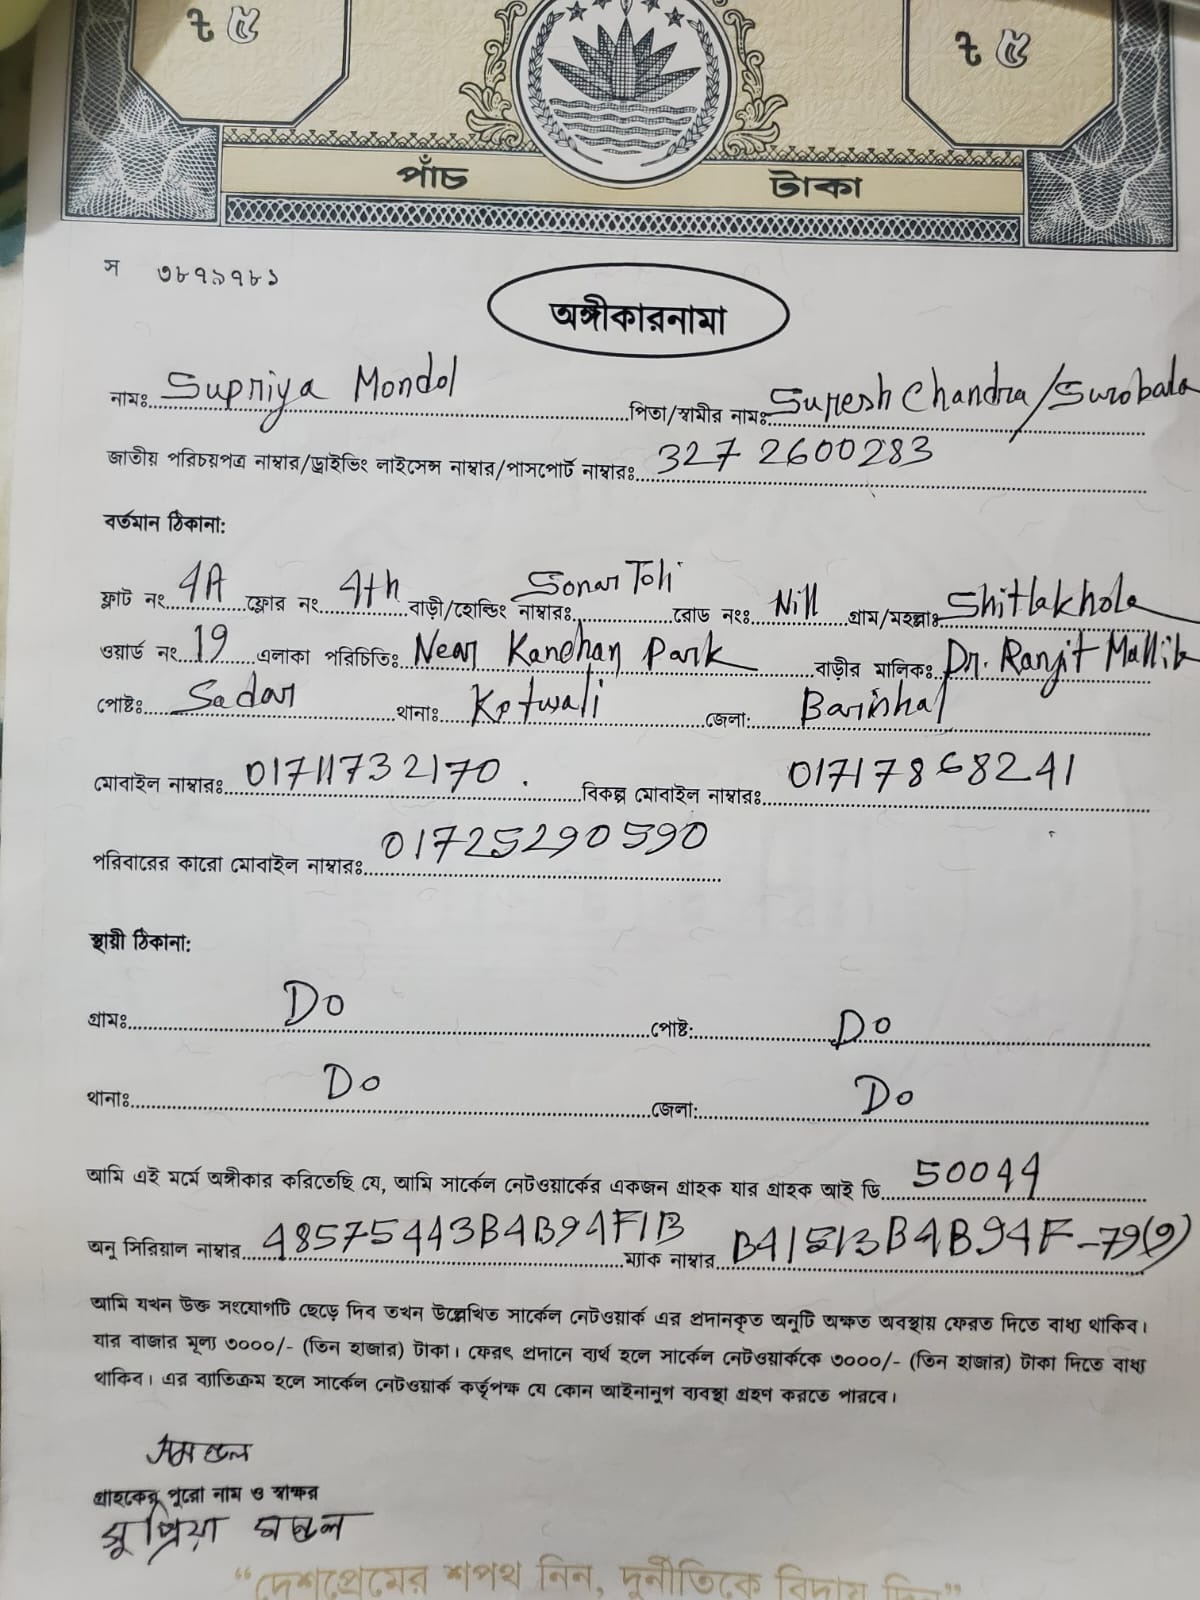 ৳ ৫ ৳ ৫
পাঁচ টাকা
স ৩৮৭৯৭৮১
অঙ্গীকারনামা
নামঃ Supriya Mondol পিতা/স্বামীর নামঃ Suresh Chandra/Surobala
জাতীয় পরিচয়পত্র নাম্বার/ড্রাইভিং লাইসেন্স নাম্বার/পাসপোর্ট নাম্বারঃ 327 2600283
বর্তমান ঠিকানা:
ফ্লাট নং 4A ফ্লোর নং 4th বাড়ী/হোল্ডিং নাম্বারঃ Sonar Tori রোড নংঃ Nill গ্রাম/মহল্লাঃ Shitlakhola
ওয়ার্ড নং 19 এলাকা পরিচিতিঃ Near Kanchan Park বাড়ীর মালিকঃ Dr. Ranjit Mallik
পোষ্টঃ Sadar থানাঃ Kotwali জেলা: Barishal
মোবাইল নাম্বারঃ 01711732170. বিকল্প মোবাইল নাম্বারঃ 01717868241
পরিবারের কারো মোবাইল নাম্বারঃ 01725290590
স্থায়ী ঠিকানা:
গ্রামঃ Do পোষ্ট: Do
থানাঃ Do জেলা: Do
আমি এই মর্মে অঙ্গীকার করিতেছি যে, আমি সার্কেল নেটওয়ার্কের একজন গ্রাহক যার গ্রাহক আই ডি 50044
অনু সিরিয়াল নাম্বার 48575443B4B94F1B ম্যাক নাম্বার
আমি যখন উক্ত সংযোগটি ছেড়ে দিব তখন উল্লেখিত সার্কেল নেটওয়ার্ক এর প্রদানকৃত অনুটি অক্ষত অবস্থায় ফেরত দিতে বাধ্য থাকিব।
যার বাজার মূল্য ৩০০০/- (তিন হাজার) টাকা। ফেরৎ প্রদানে ব্যর্থ হলে সার্কেল নেটওয়ার্ককে ৩০০০/- (তিন হাজার) টাকা দিতে বাধ্য
থাকিব। এর ব্যাতিক্রম হলে সার্কেল নেটওয়ার্ক কর্তৃপক্ষ যে কোন আইনানুগ ব্যবস্থা গ্রহণ করতে পারবে।
গ্রাহকের পুরো নাম ও স্বাক্ষর
সুপ্রিয়া মন্ডল
“দেশপ্রেমের শপথ নিন, দুর্নীতিকে বিদায় দিন”